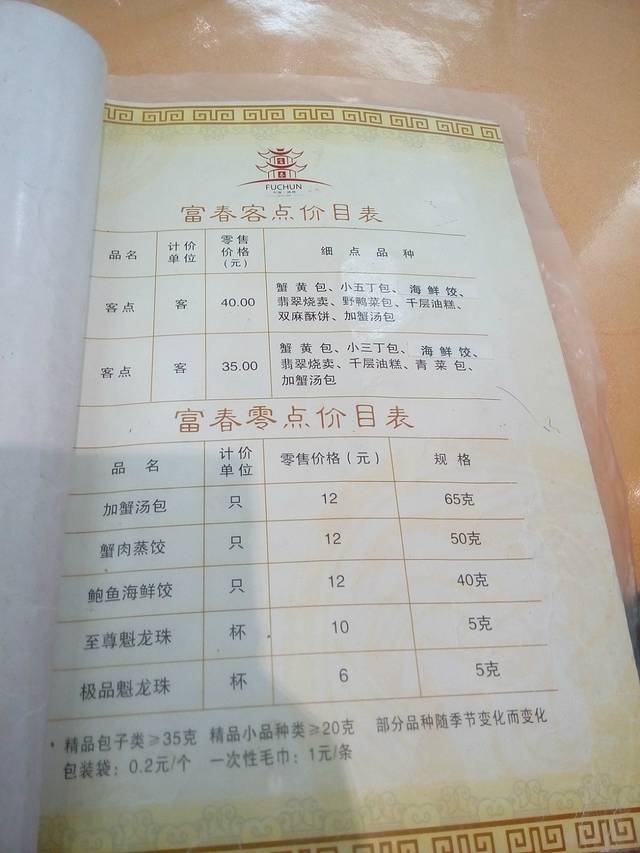 FUCHUN
富春客点价目表
品名 计价单位 零售价格(元) 细点品种
客点 客 40.00 蟹黄包、小五丁包、海鲜饺、
翡翠烧卖、野鸭菜包、千层油糕、
双麻酥饼、加蟹汤包
客点 客 35.00 蟹黄包、小三丁包、海鲜饺、
翡翠烧卖、千层油糕、青菜包、
加蟹汤包
富春零点价目表
品名 计价单位 零售价格(元) 规格
加蟹汤包 只 12 65克
蟹肉蒸饺 只 12 50克
鲍鱼海鲜饺 只 12 40克
至尊魁龙珠 杯 10 5克
极品魁龙珠 杯 6 5克
精品包子类≥35克 精品小品种类≥20克 部分品种随季节变化而变化
包装袋:0.2元/个 一次性毛巾:1元/条